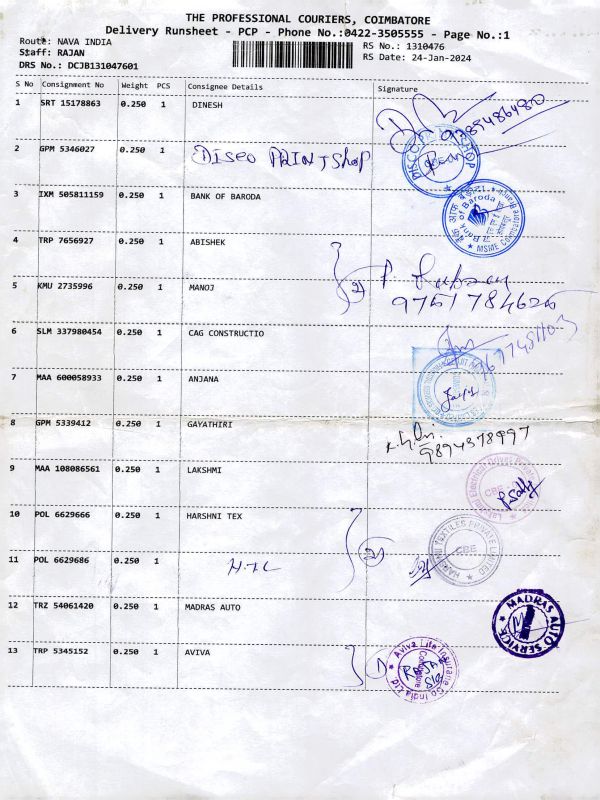 THE PROFESSIONAL COURIERS, COIMBATORE
Delivery Runsheet - PCP - Phone No.:0422-3505555 - Page No.:1
Route: NAVA INDIA
Staff: RAJAN
DRS No.: DCJB131047601
RS No.: 1310476
RS Date: 24-Jan-2024
S No Consignment No Weight PCS Consignee Details Signature
1 SRT 15178863 0.250 1 DINESH
2 GPM 5346027 0.250 1 DISCO PRINT Shop
3 IXM 505811159 0.250 1 BANK OF BARODA
4 TRP 7656927 0.250 1 ABISHEK
5 KMU 2735996 0.250 1 MANOJ
9751784626
6 SLM 337980454 0.250 1 CAG CONSTRUCTIO
7 MAA 600058933 0.250 1 ANJANA
8 GPM 5339412 0.250 1 GAYATHIRI
9894378997
9 MAA 108086561 0.250 1 LAKSHMI
10 POL 6629666 0.250 1 HARSHNI TEX
11 POL 6629686 0.250 1 H.T.L
CBE
12 TRZ 54061420 0.250 1 MADRAS AUTO
MADRAS AUTO SERVICE
13 TRP 5345152 0.250 1 AVIVA
Aviva Life Insurance Co India Ltd
Coimbatore